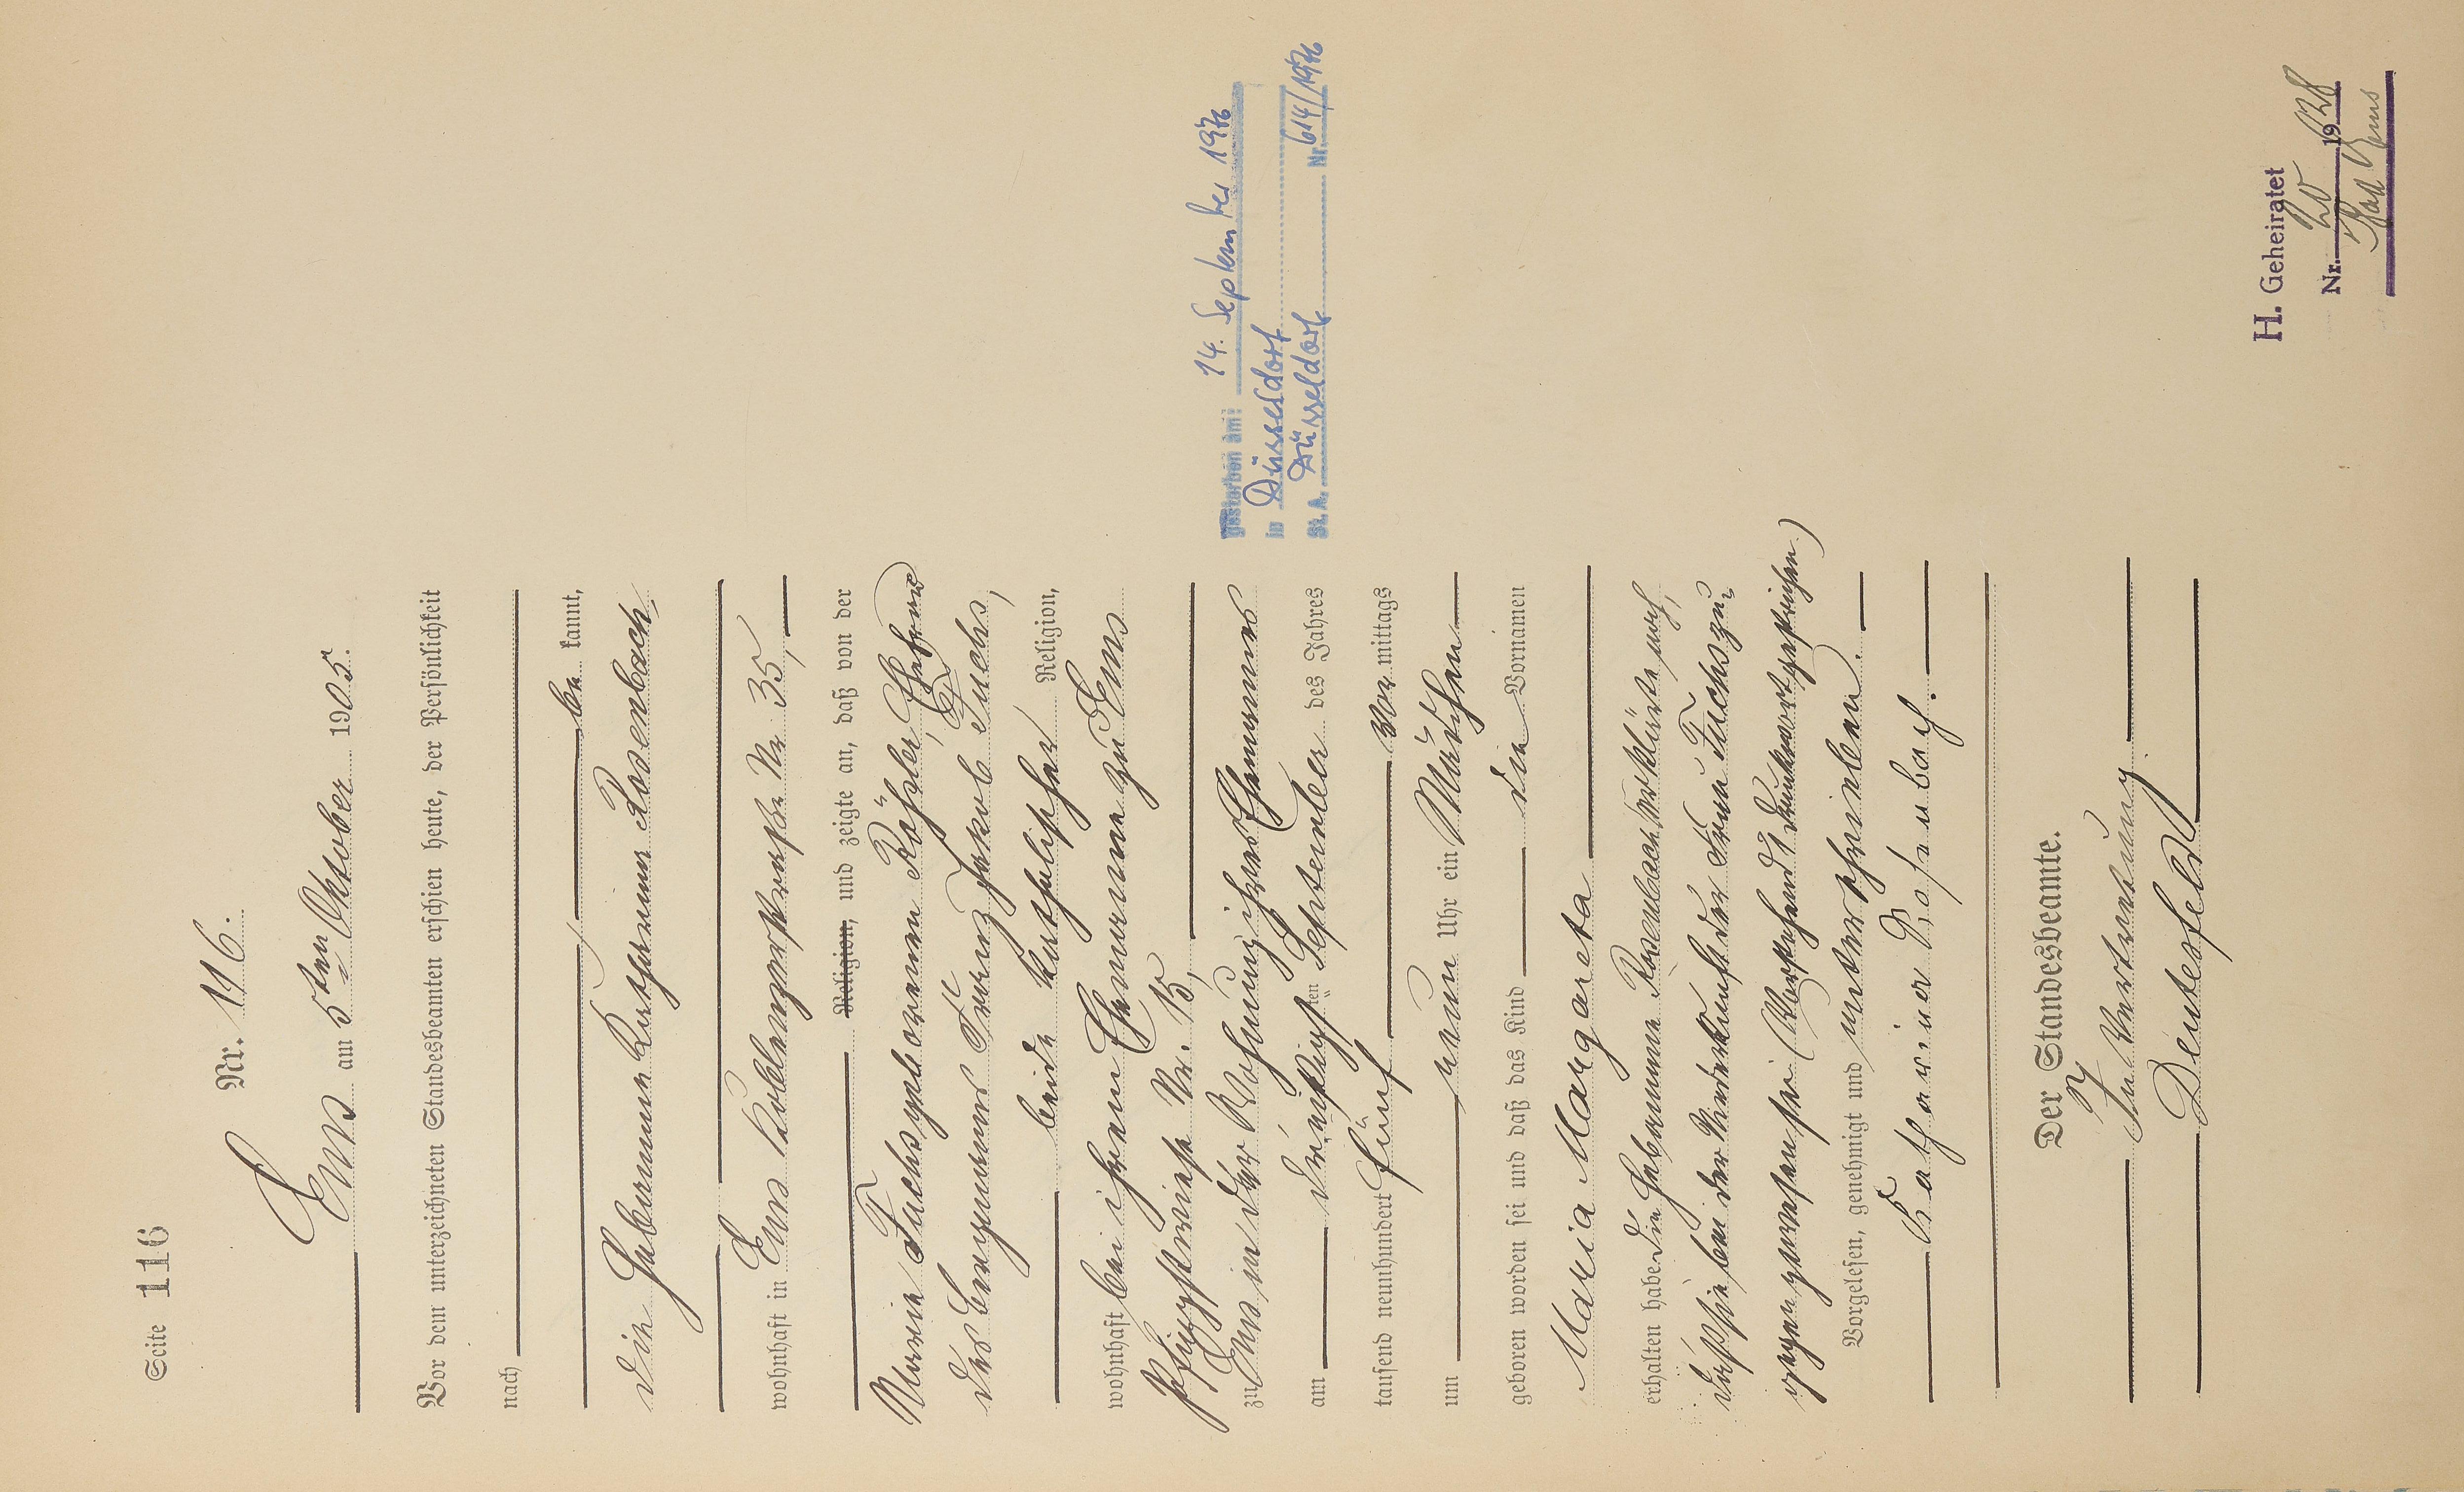 Seite 116
Nr. 116.
Ems am 5ten Oktober 1905.
Vor dem unterzeichneten Standesbeamten erschien heute, der Persönlichkeit
nach
be kannt,
die Hebamme Katharina Rosenbach,
wohnhaft in Ems Koblenzerstraße Nr 35,
Religion, und zeigte an, daß von der
Maria Fuchs geborenen Roßler, Ehefrau
des Bergmanns Franz Jakob Fuchs,
beide katholischer Religion,
wohnhaft bei ihrem Ehemanne zu Ems
Pfingstwiese Nr. 15,
zu Ems in der Wohnung ihres Ehemannes
am dreißigsten September des Jahres
tausend neunhundert fünf Vor mittags
um neun Uhr ein Mädchen
geboren worden sei und daß das Kind die Vornamen
Maria Margareta
erhalten habe. Die Hebamme Rosenbach erklärte noch,
daß sie bei der Niederkunft der Frau Fuchs zu-
gegen gewesen sei. (Vorstehend 1 Druckwort gestrichen.)
Vorgelesen, genehmigt und unterschrieben.
Katharina Rosenbach.
Der Standesbeamte.
In Vertretung.
Deutesfeld
Gestorben am: 14. September 1976
in Düsseldorf
St. A. Düsseldorf Nr. 614/1976
H. Geheiratet
Nr. 20 1928
Bad Ems